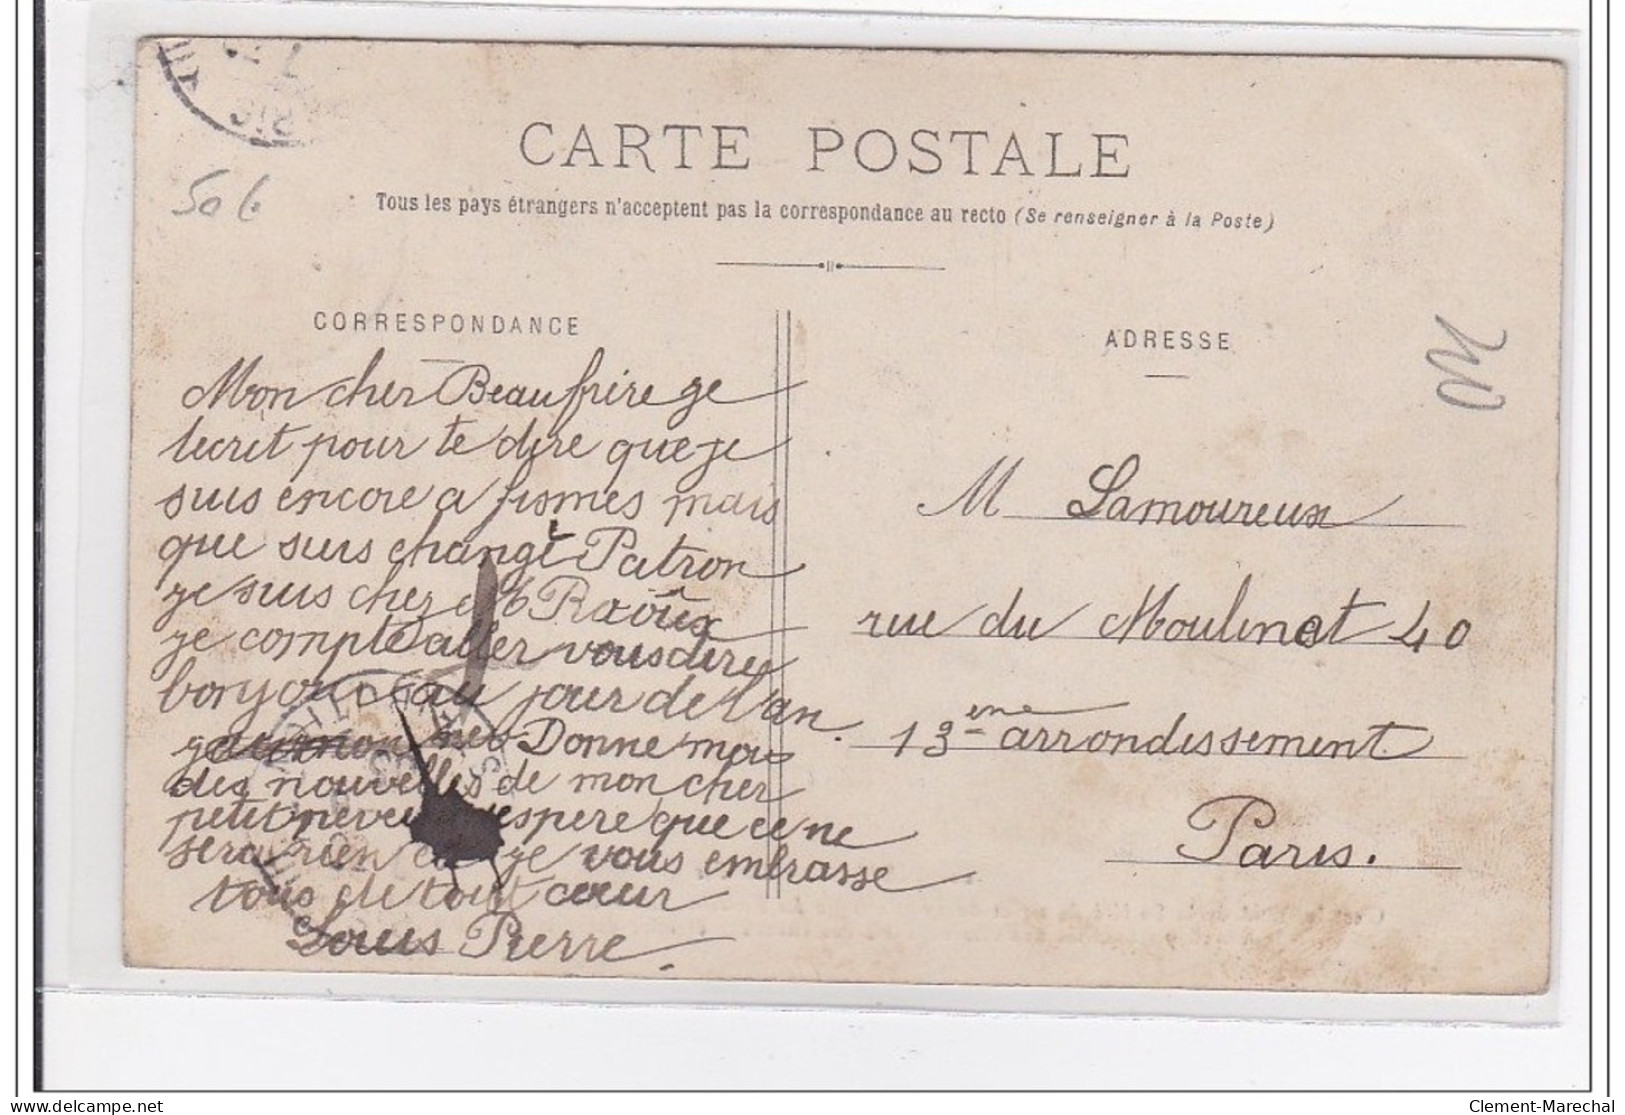 CARTE POSTALE
Tous les pays étrangers n'acceptent pas la correspondance au recto (Se renseigner à la Poste)
CORRESPONDANCE
Mon cher Beaufrire ge
lecrit pour te dire que je
suis encore a fismes mais
que suis changé Patron
je suis chez
je compte aller vous dire
bonjour au jour de l'an.
Donne moi
des nouvelles de mon cher
petit neveu espere que ce ne
sera rien je vous embrasse
tous de tout cœur
Louis Pierre.
ADRESSE
M Lamoureux
rue du Moulinet 40
13eme arrondissement
Paris.
50 f.
Clement-Marechal